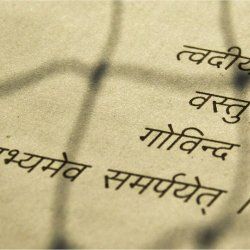 त्वदीय
वस्तु
गोविन्द
भ्यमेव समर्पयेत् ।